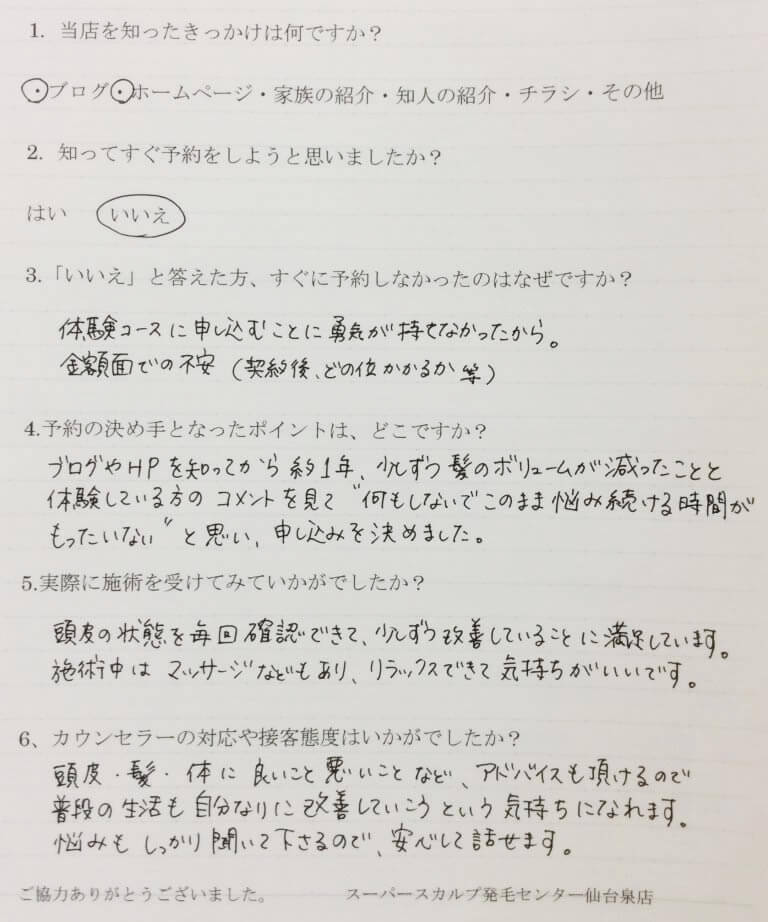 1. 当店を知ったきっかけは何ですか？
・ブログ・ホームページ・家族の紹介・知人の紹介・チラシ・その他
2. 知ってすぐ予約をしようと思いましたか？
はい　いいえ
3.「いいえ」と答えた方、すぐに予約しなかったのはなぜですか？
体験コースに申し込むことに勇気が持てなかったから。
金額面での不安（契約後、どの位かかるか等）
4.予約の決め手となったポイントは、どこですか？
ブログやHPを知ってから約1年、少しずつ髪のボリュームが減ったことと
体験している方のコメントを見て“何もしないでこのまま悩み続ける時間が
もったいない”と思い、申し込みを決めました。
5.実際に施術を受けてみていかがでしたか？
頭皮の状態を毎回確認できて、少しずつ改善していることに満足しています。
施術中はマッサージなどもあり、リラックスできて気持ちがいいです。
6、カウンセラーの対応や接客態度はいかがでしたか？
頭皮・髪・体に良いこと悪いことなど、アドバイスも頂けるので
普段の生活も自分なりに改善していこうという気持ちになれます。
悩みもしっかり聞いて下さるので、安心して話せます。
ご協力ありがとうございました。　スーパースカルプ発毛センター仙台泉店